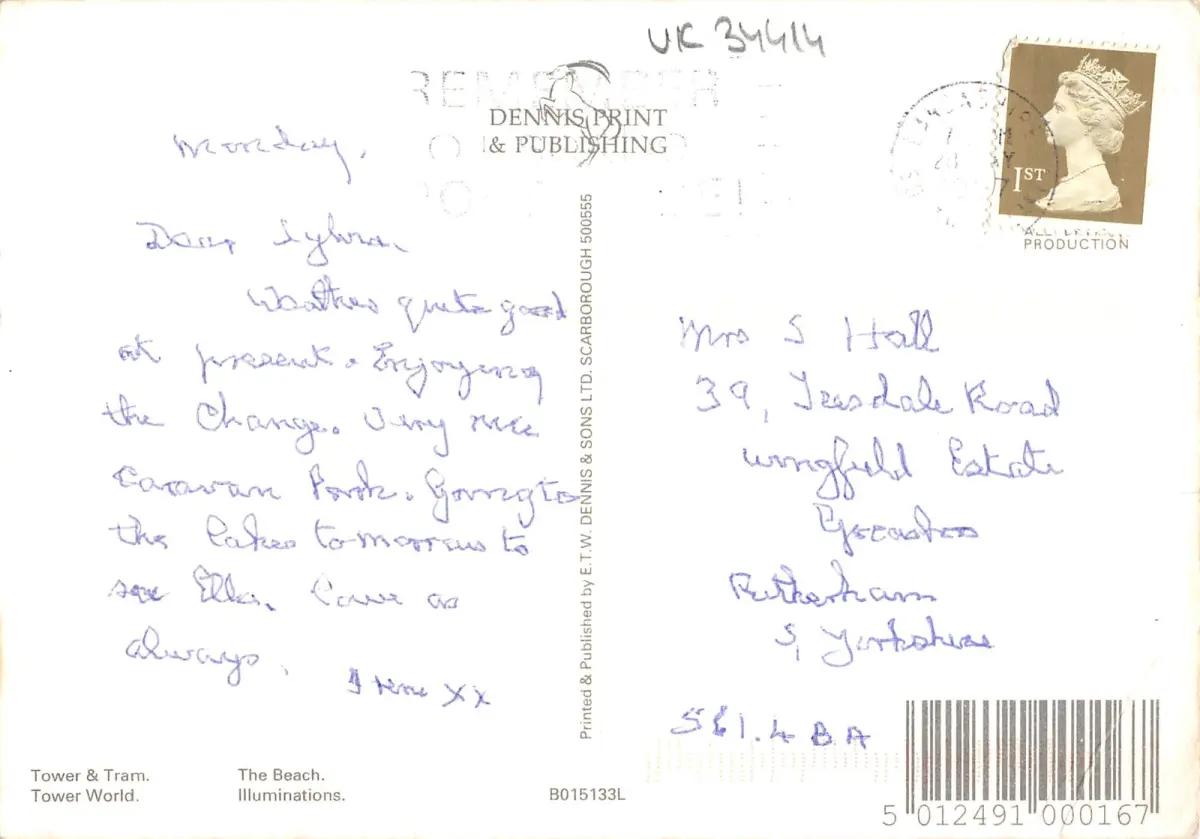 UK 34414
REMEMBER
DENNIS PRINT
& PUBLISHING
1ST
PRODUCTION
Monday.
Dear Sylvia.
Weather quite good
at present. Enjoying
the Change. Very nice
Caravan Park. Going to
the Lakes tomorrow to
see Ella. Love as
always.
Irene XX
Printed & Published by E.T.W. DENNIS & SONS LTD. SCARBOROUGH 500555
Mrs S Hall
39, Road
Wingfield Estate
Rotherham
S, Yorkshire
S61.4BA
Tower & Tram.
Tower World.
The Beach.
Illuminations.
B015133L
5 012491 000167